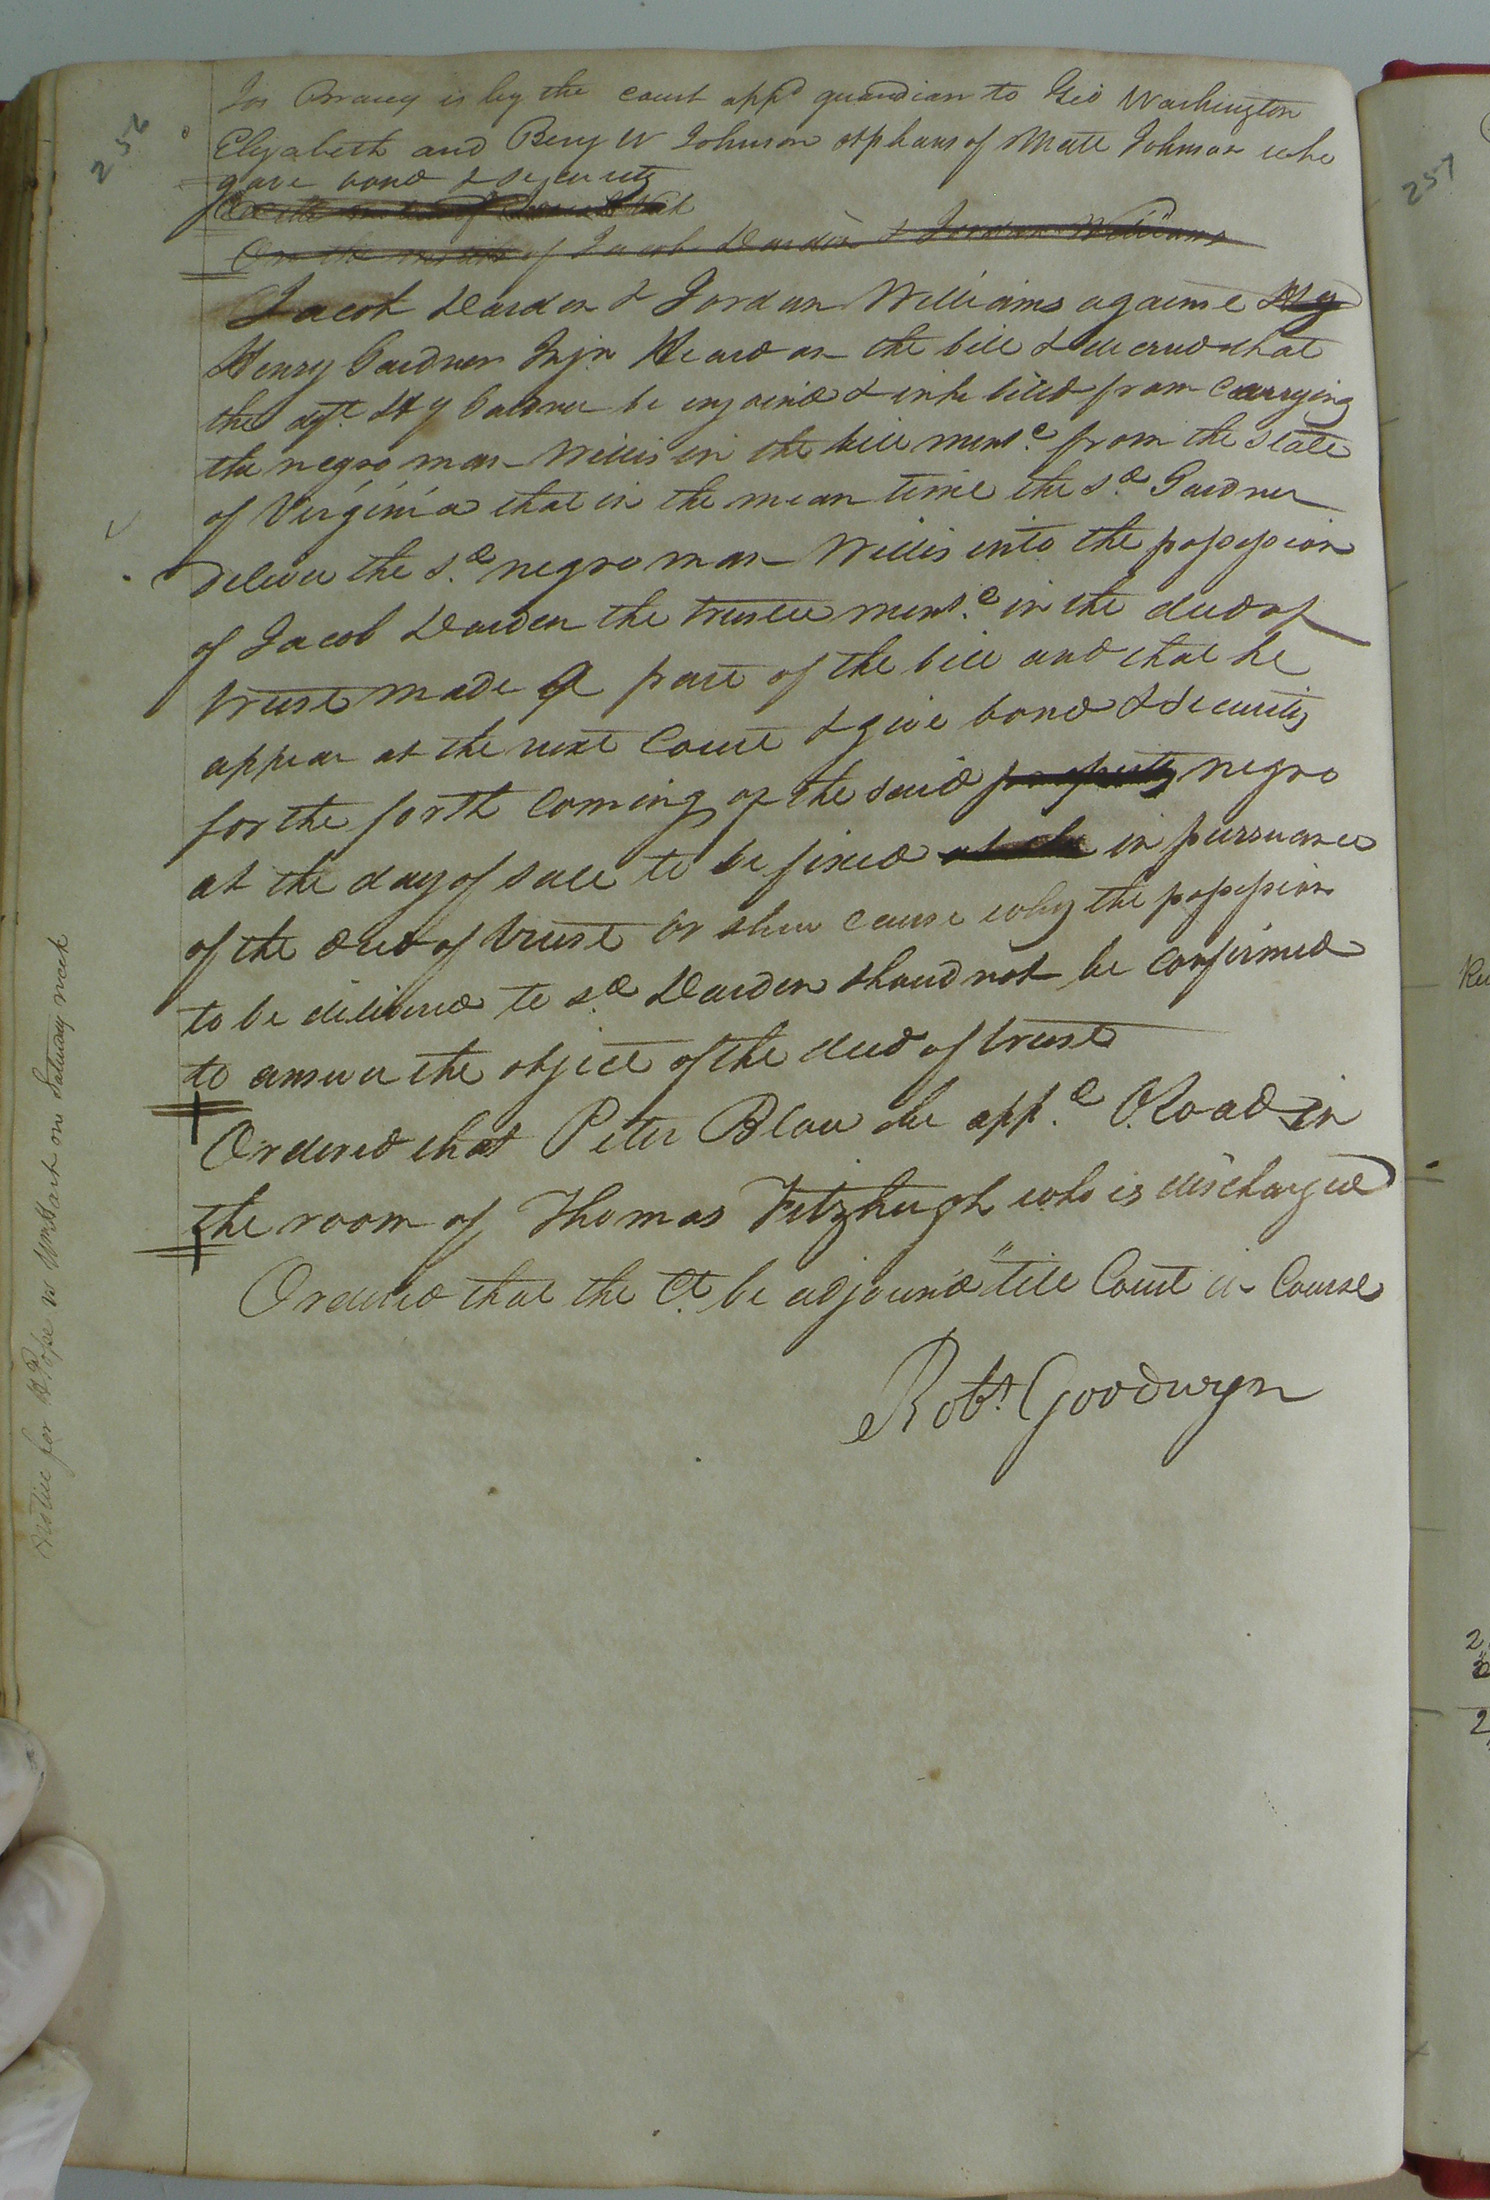 256
Jos Bracey is by the court appd guardian to Geo Washington
Elizabeth and Benj W Johnson orphans of Matt Johnson who
gave bond & security
On the motion of
On the motion of Jacob Darden & Jordan Williams
Jacob Darden & Jordan Williams against Hy
Henry Gardner Injn Heard on the bill & decreed that
the dft. Hy Gardner be enjoined & inhibited from carrying
the negro man Willis in the bill mentd. from the State
of Virginia that in the mean time the sd. Gardner
deliver the sd. negro man Willis into the possession
of Jacob Darden the trustee mentd. in the deed of
trust made a part of the bill and that he
appear at the next Court & give bond & security
for the forth coming of the said property negro
at the day of sale to be fixed at the in pursuance
of the deed of trust or shew cause why the possession
to be delivered to sd. Darden shoud not be confirmed
to answer the object of the deed of trust
Ordered that Peter Blow be appd. O. Road in
the room of Thomas Fitzhugh who is discharged
Ordered that the Ct. be adjournd till Court in Course
Robt. Goodwyn
notice for Pope vs on Saturday next
257